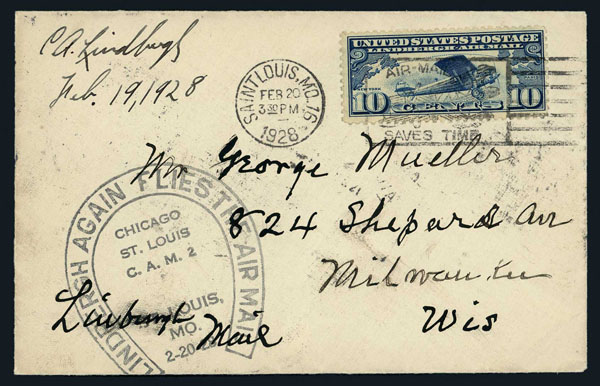 C. A. Lindbergh
Feb. 19, 1928
SAINT LOUIS, MO. 16
FEB 20
3 30 PM
1928
UNITED STATES POSTAGE
LINDBERGH AIR MAIL
10 CENTS 10
AIR-MAIL
SAVES TIME
Mr George Mueller
824 Shepard Av
Milwaukee
Wis
LINDBERGH AGAIN FLIES THE AIR MAIL
CHICAGO
ST. LOUIS
C. A. M. 2
LOUIS,
MO.
2-20-
Linburgh
Mail